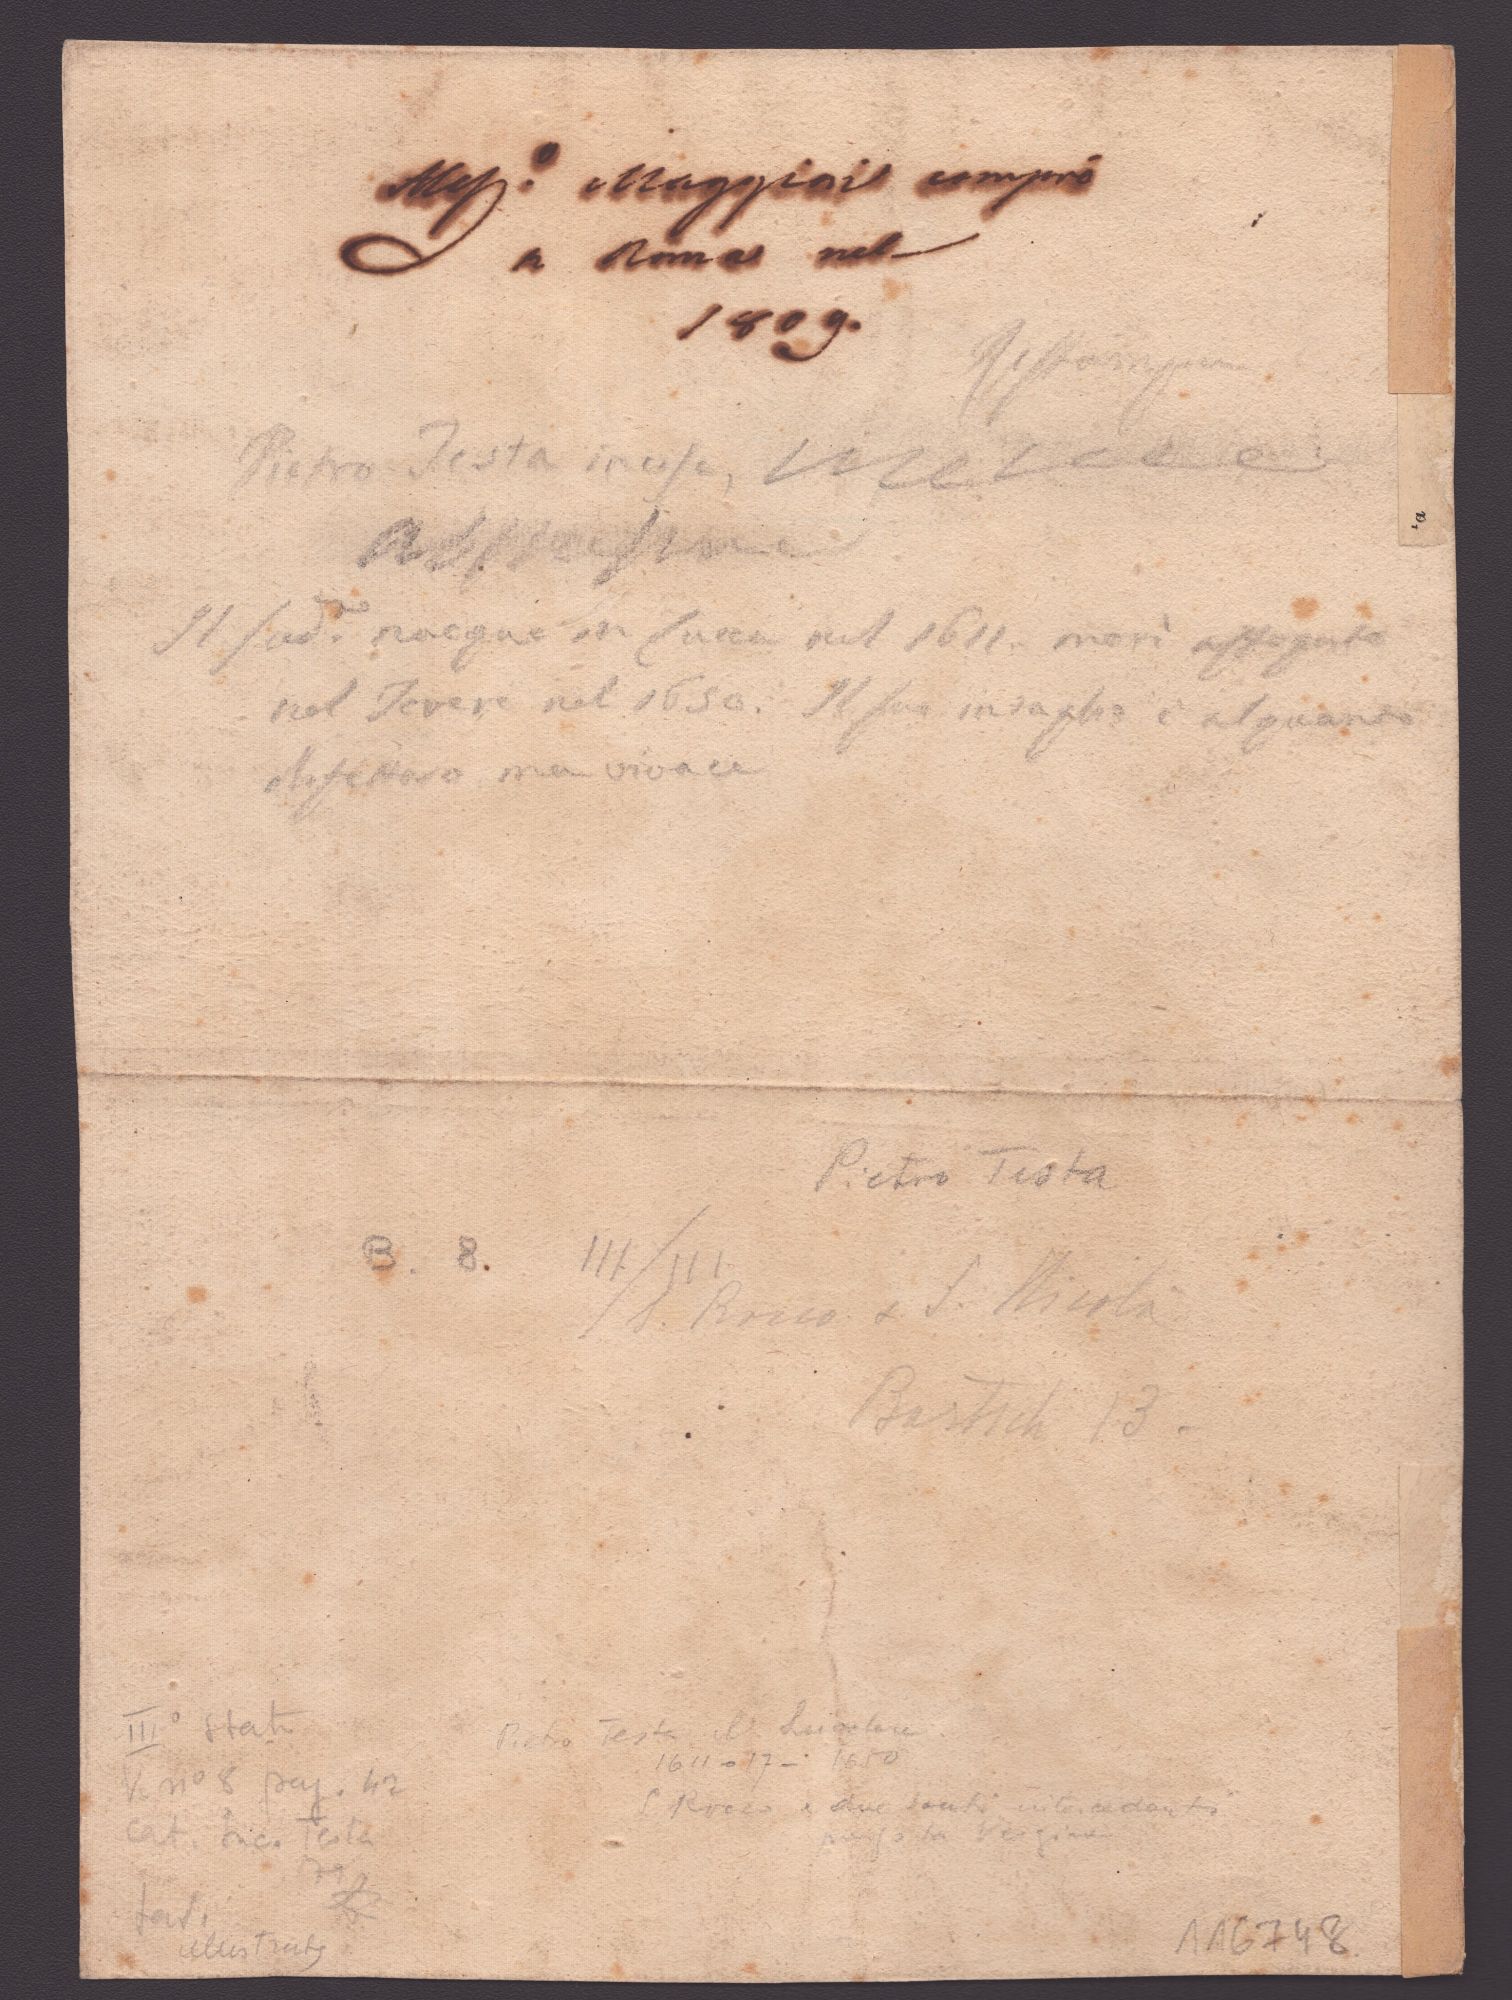 Aless.º Maggiori comprò
a Roma nel
1809.
Pietro Testa incise,
Il sud.º nacque in Lucca nel 1611. morì affogato
nel Tevere nel 1650. Il suo intaglio è alquanto
difettoso ma vivace
Pietro Testa
B. 8. III/III
S. Rocco e S. Nicola
Bartsch 13 -
IIIº stato
V. nº 8 pag. 42
cat. inc. Testa
illustrato
Pietro Testa il Lucchese
1611-17- 1650
S. Rocco e due santi intercedenti
presso la Vergine
116748.